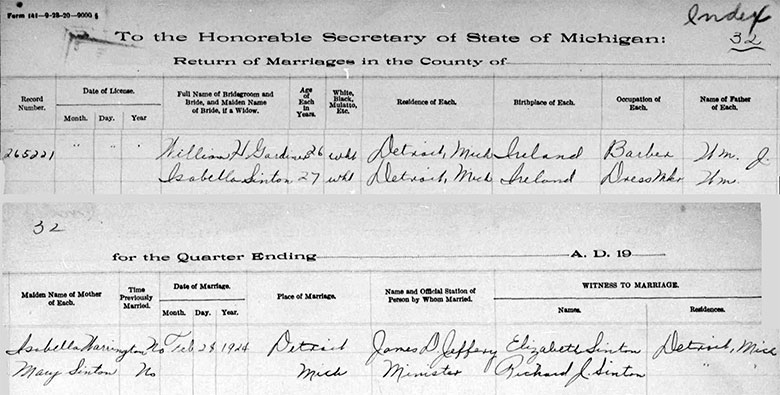 Form 141-9-28-20-9000 §
Index
To the Honorable Secretary of State of Michigan:
32
Return of Marriages in the County of
Record Number.
Date of License.
Month. Day. Year
Full Name of Bridegroom and Bride, and Maiden Name of Bride, if a Widow.
Age of Each in Years.
White, Black, Mulatto, Etc.
Residence of Each.
Birthplace of Each.
Occupation of Each.
Name of Father of Each.
265221 " " William H. Gardiner 26 wht Detroit, Mich Ireland Barber Wm. J.
Isabella Sinton 27 wht Detroit, Mich Ireland DressMkr Wm.
32
for the Quarter Ending A. D. 19
Maiden Name of Mother of Each.
Time Previously Married.
Date of Marriage.
Month. Day. Year.
Place of Marriage.
Name and Official Station of Person by Whom Married.
WITNESS TO MARRIAGE.
Names. Residences.
Isabella Warrington No Feb 28 1924 Detroit James D. Jeffery Elizabeth Sinton Detroit, Mich
Mary Sinton No Mich Minister Richard J. Sinton " "